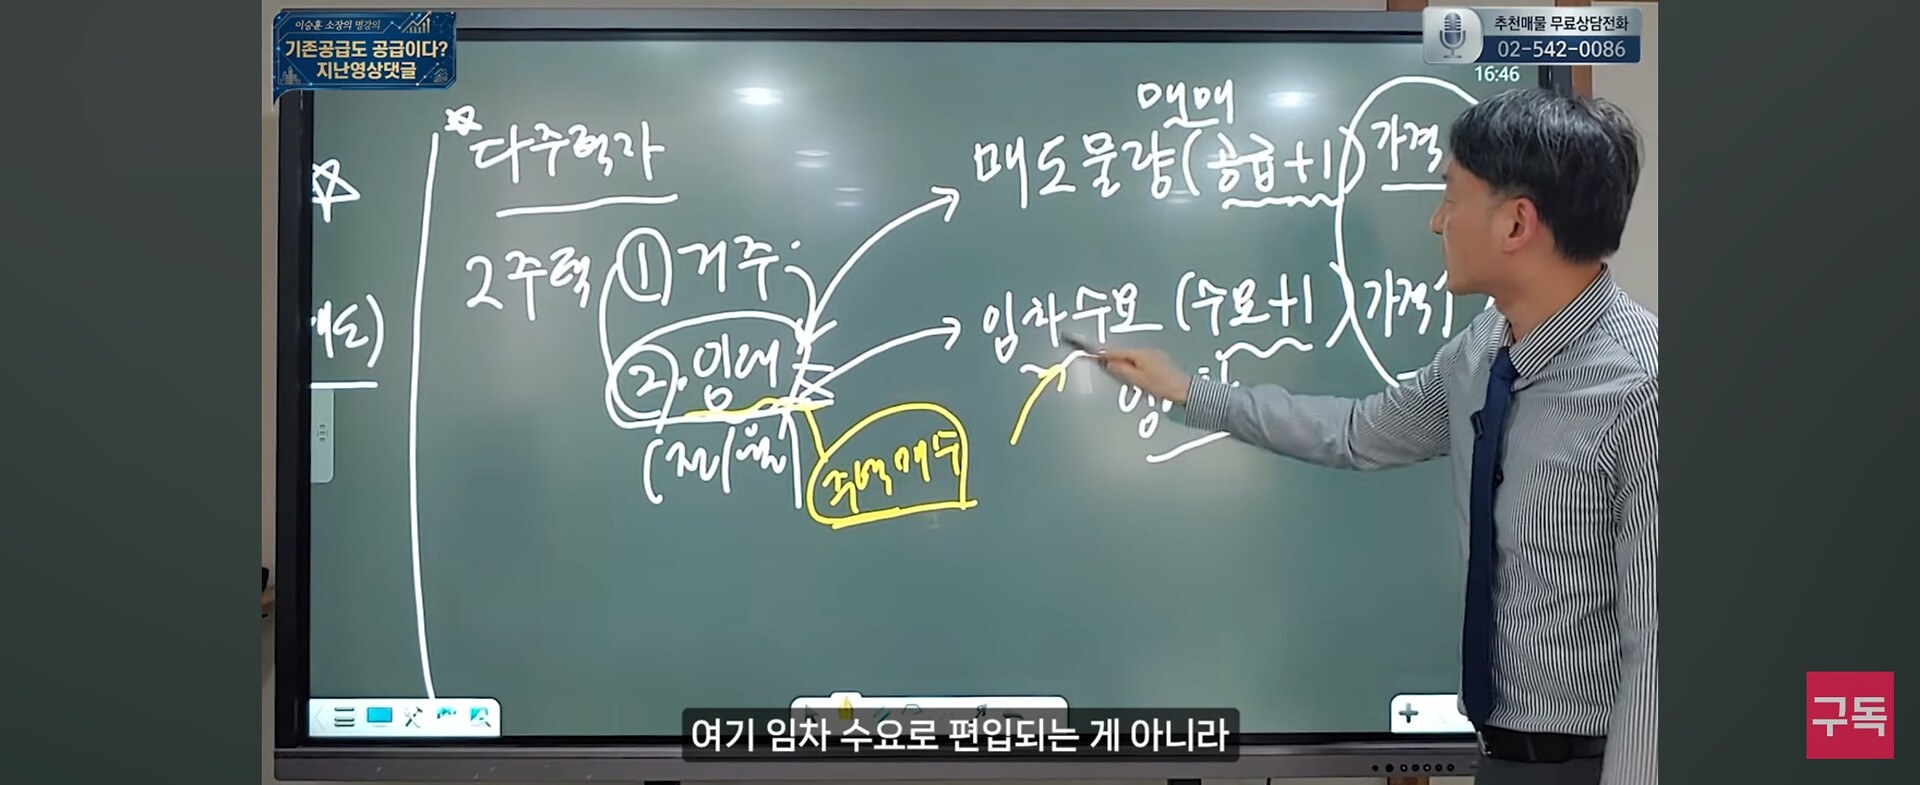 이승훈 소장의 명강의
기존공급도 공급이다?
지난영상댓글
추천매물 무료상담전화
02-542-0086
16:46
매매
다주택자
매도물량(공급+1)
가격
2주택
① 거주
임차수요 (수요+1)
가격
② 임대
(전/월)
주택매수
여기 임차 수요로 편입되는 게 아니라
구독